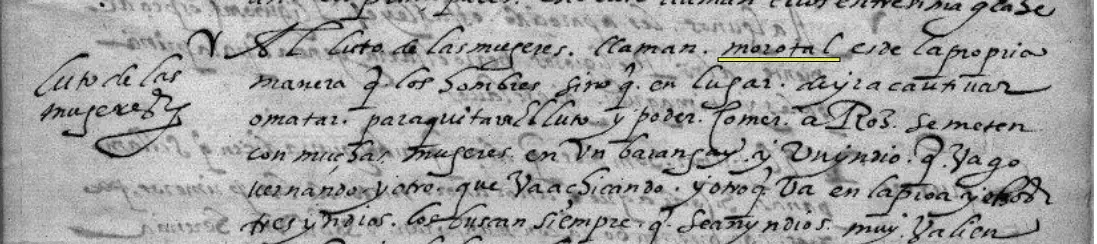 luto de las
mugeres
Al luto de las mugeres. llaman. morotal es de la propria
manera q̃ los hombres sino q̃. en lugar. de yr a cautivar
o matar. para quitar el luto y poder. Comer. aRoz. se meten
con muchas mugeres. en Vn barangay. y Vn yndio. q̃. Va go
vernando. y otro. que Va achicando. y otro q̃ Va en la proa y estos
tres yndios. los buscan siempre. q̃. sean yndios. muy. Valien